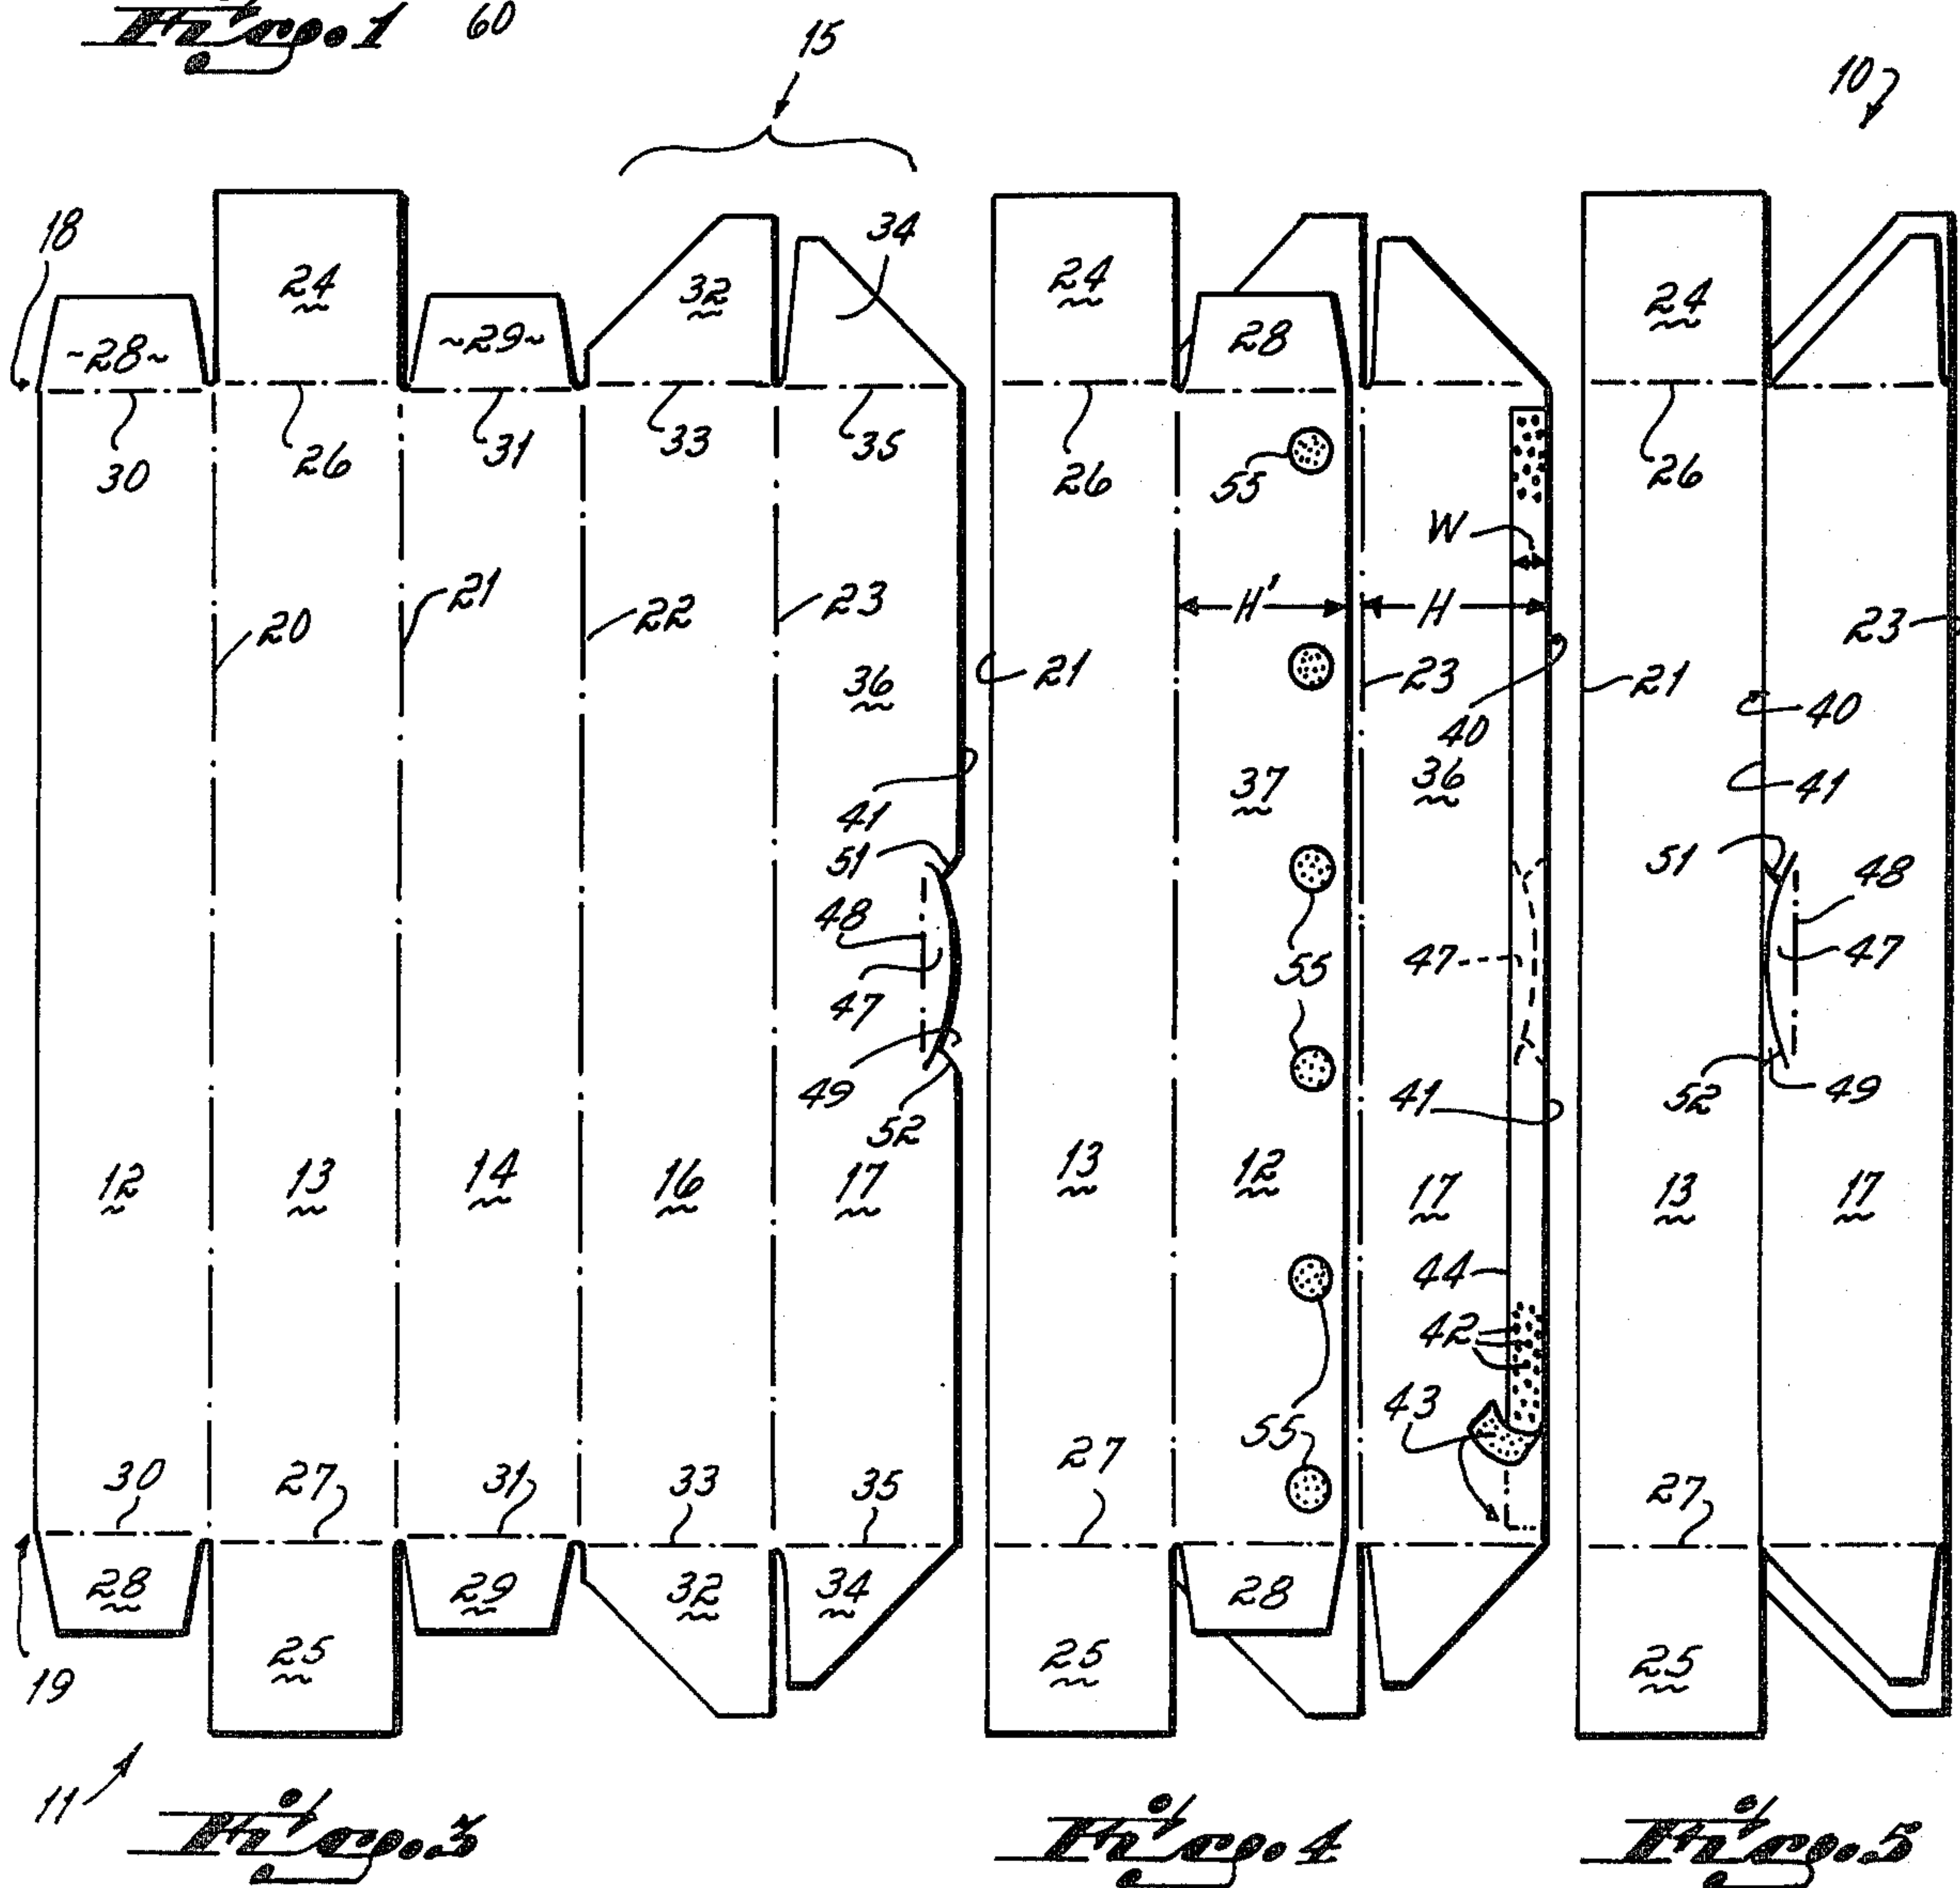 Fig. 1 60
15
10
18
24
32
34
24
24
~28~
~29~
28
30
26
31
33
35
26
55
26
W
20
21
22
23
H'
H
23
36
21
23
21
40
40
37
36
41
41
51
51
48
48
47
55
47
47
49
41
52
49
52
12
13
14
16
17
13
12
17
13
17
44
42
43
55
30
27
31
33
35
27
27
28
29
32
34
28
25
25
25
19
11
Fig. 3
Fig. 4
Fig. 5